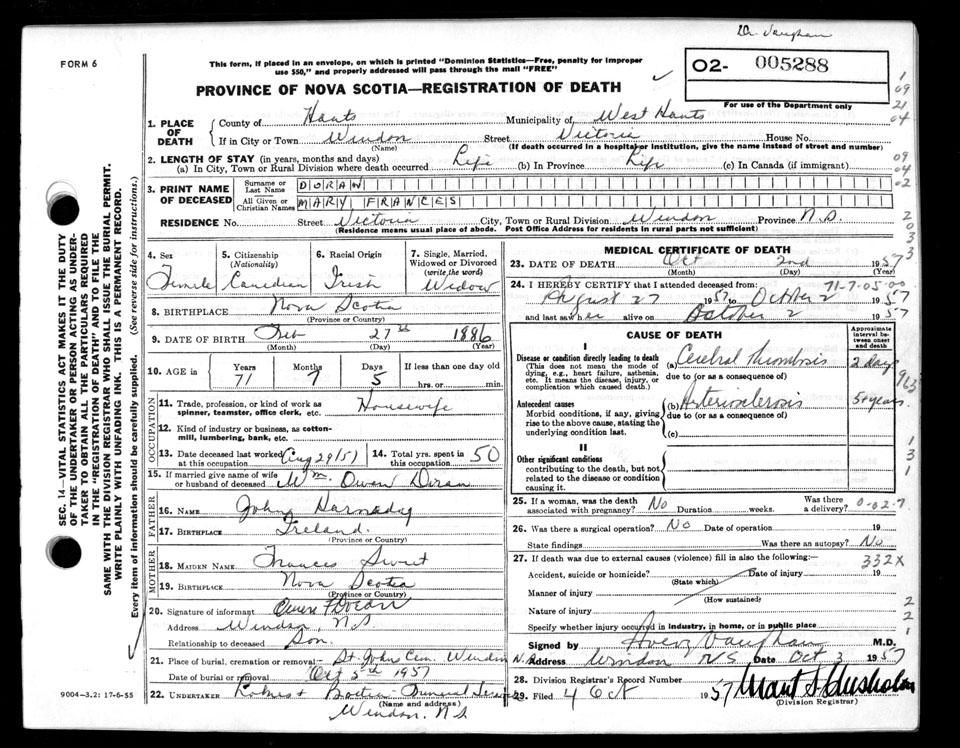 Dr Vaughan
FORM 6
This form, if placed in an envelope, on which is printed "Dominion Statistics—Free, penalty for improper
use $50," and properly addressed will pass through the mail "FREE"
O2- 005288
For use of the Department only
PROVINCE OF NOVA SCOTIA—REGISTRATION OF DEATH
1. PLACE OF DEATH
County of Hants Municipality of West Hants
If in City or Town Windsor Street Victoria House No.
(Name) (If death occurred in a hospital or institution, give the name instead of street and number)
2. LENGTH OF STAY (in years, months and days)
(a) In City, Town or Rural Division where death occurred Life (b) In Province Life (c) In Canada (if immigrant)
3. PRINT NAME OF DECEASED
Surname or Last Name DORAN
All Given or Christian Names MARY FRANCES
RESIDENCE No. Street Victoria City, Town or Rural Division Windsor Province N.S.
(Residence means usual place of abode. Post Office Address for residents in rural parts not sufficient)
4. Sex Female
5. Citizenship (Nationality) Canadian
6. Racial Origin Irish
7. Single, Married, Widowed or Divorced (write the word) Widow
8. BIRTHPLACE Nova Scotia
(Province or Country)
9. DATE OF BIRTH Feb 27th 1886
(Month) (Day) (Year)
10. AGE in Years Months Days If less than one day old
71 7 5 hrs. or min.
OCCUPATION
11. Trade, profession, or kind of work as
spinner, teamster, office clerk, etc. Housewife
12. Kind of industry or business, as cotton-
mill, lumbering, bank, etc.
13. Date deceased last worked at this occupation Aug 29/57
14. Total yrs. spent in this occupation 50
15. If married give name of wife
or husband of deceased Wm. Owen Doran
FATHER
16. NAME John
17. BIRTHPLACE Ireland.
(Province or Country)
MOTHER
18. MAIDEN NAME Frances
19. BIRTHPLACE Nova Scotia
(Province or Country)
20. Signature of informant Owen F Doran
Address Windsor, N.S
Relationship to deceased Son.
21. Place of burial, cremation or removal St. Johns Cem. Windsor N.S.
Date of burial or removal Oct 5th 1957
22. UNDERTAKER Funeral
(Name and address)
Windsor. N.S.
MEDICAL CERTIFICATE OF DEATH
23. DATE OF DEATH Oct 2nd 1957
(Month) (Day) (Year)
71-7-05-00
24. I HEREBY CERTIFY that I attended deceased from:
August 27 1957 to October 2 1957
and last saw her alive on October 2 1957
CAUSE OF DEATH
Approximate interval between onset and death
I
Disease or condition directly leading to death
(This does not mean the mode of
dying, e.g., heart failure, asthenia,
etc. It means the disease, injury, or
complication which caused death.)
(a) Cerebral Thrombosis 2 days
due to (or as a consequence of)
Antecedent causes
Morbid conditions, if any, giving
rise to the above cause, stating the
underlying condition last.
(b) Arteriosclerosis 5+ years.
due to (or as a consequence of)
(c)
II
Other significant conditions
contributing to the death, but not
related to the disease or condition
causing it.
25. If a woman, was the death
associated with pregnancy? No Duration weeks. Was there a delivery? 0-02-7
26. Was there a surgical operation? No Date of operation 19
State findings Was there an autopsy? No
27. If death was due to external causes (violence) fill in also the following:— 332X
Accident, suicide or homicide? Date of injury 19
(State which)
Manner of injury
(How sustained)
Nature of injury
Specify whether injury occurred in industry, in home, or in public place
Signed by Vaughan M.D.
Address Windsor N S Date Oct 3 1957
28. Division Registrar's Record Number
29. Filed 4 Oct 1957
(Division Registrar)
SEC. 14—VITAL STATISTICS ACT MAKES IT THE DUTY
OF THE UNDERTAKER OR PERSON ACTING AS UNDER-
TAKER TO OBTAIN ALL THE PARTICULARS REQUIRED
IN THE "REGISTRATION OF DEATH" AND TO FILE THE
SAME WITH THE DIVISION REGISTRAR WHO SHALL ISSUE THE BURIAL PERMIT.
WRITE PLAINLY WITH UNFADING INK. THIS IS A PERMANENT RECORD.
Every item of information should be carefully supplied. (See reverse side for instructions.)
9004-3.2: 17-6-55
1
09
21
04
09
04
02
2
0
3
3
963
1
3
1
2
2
1